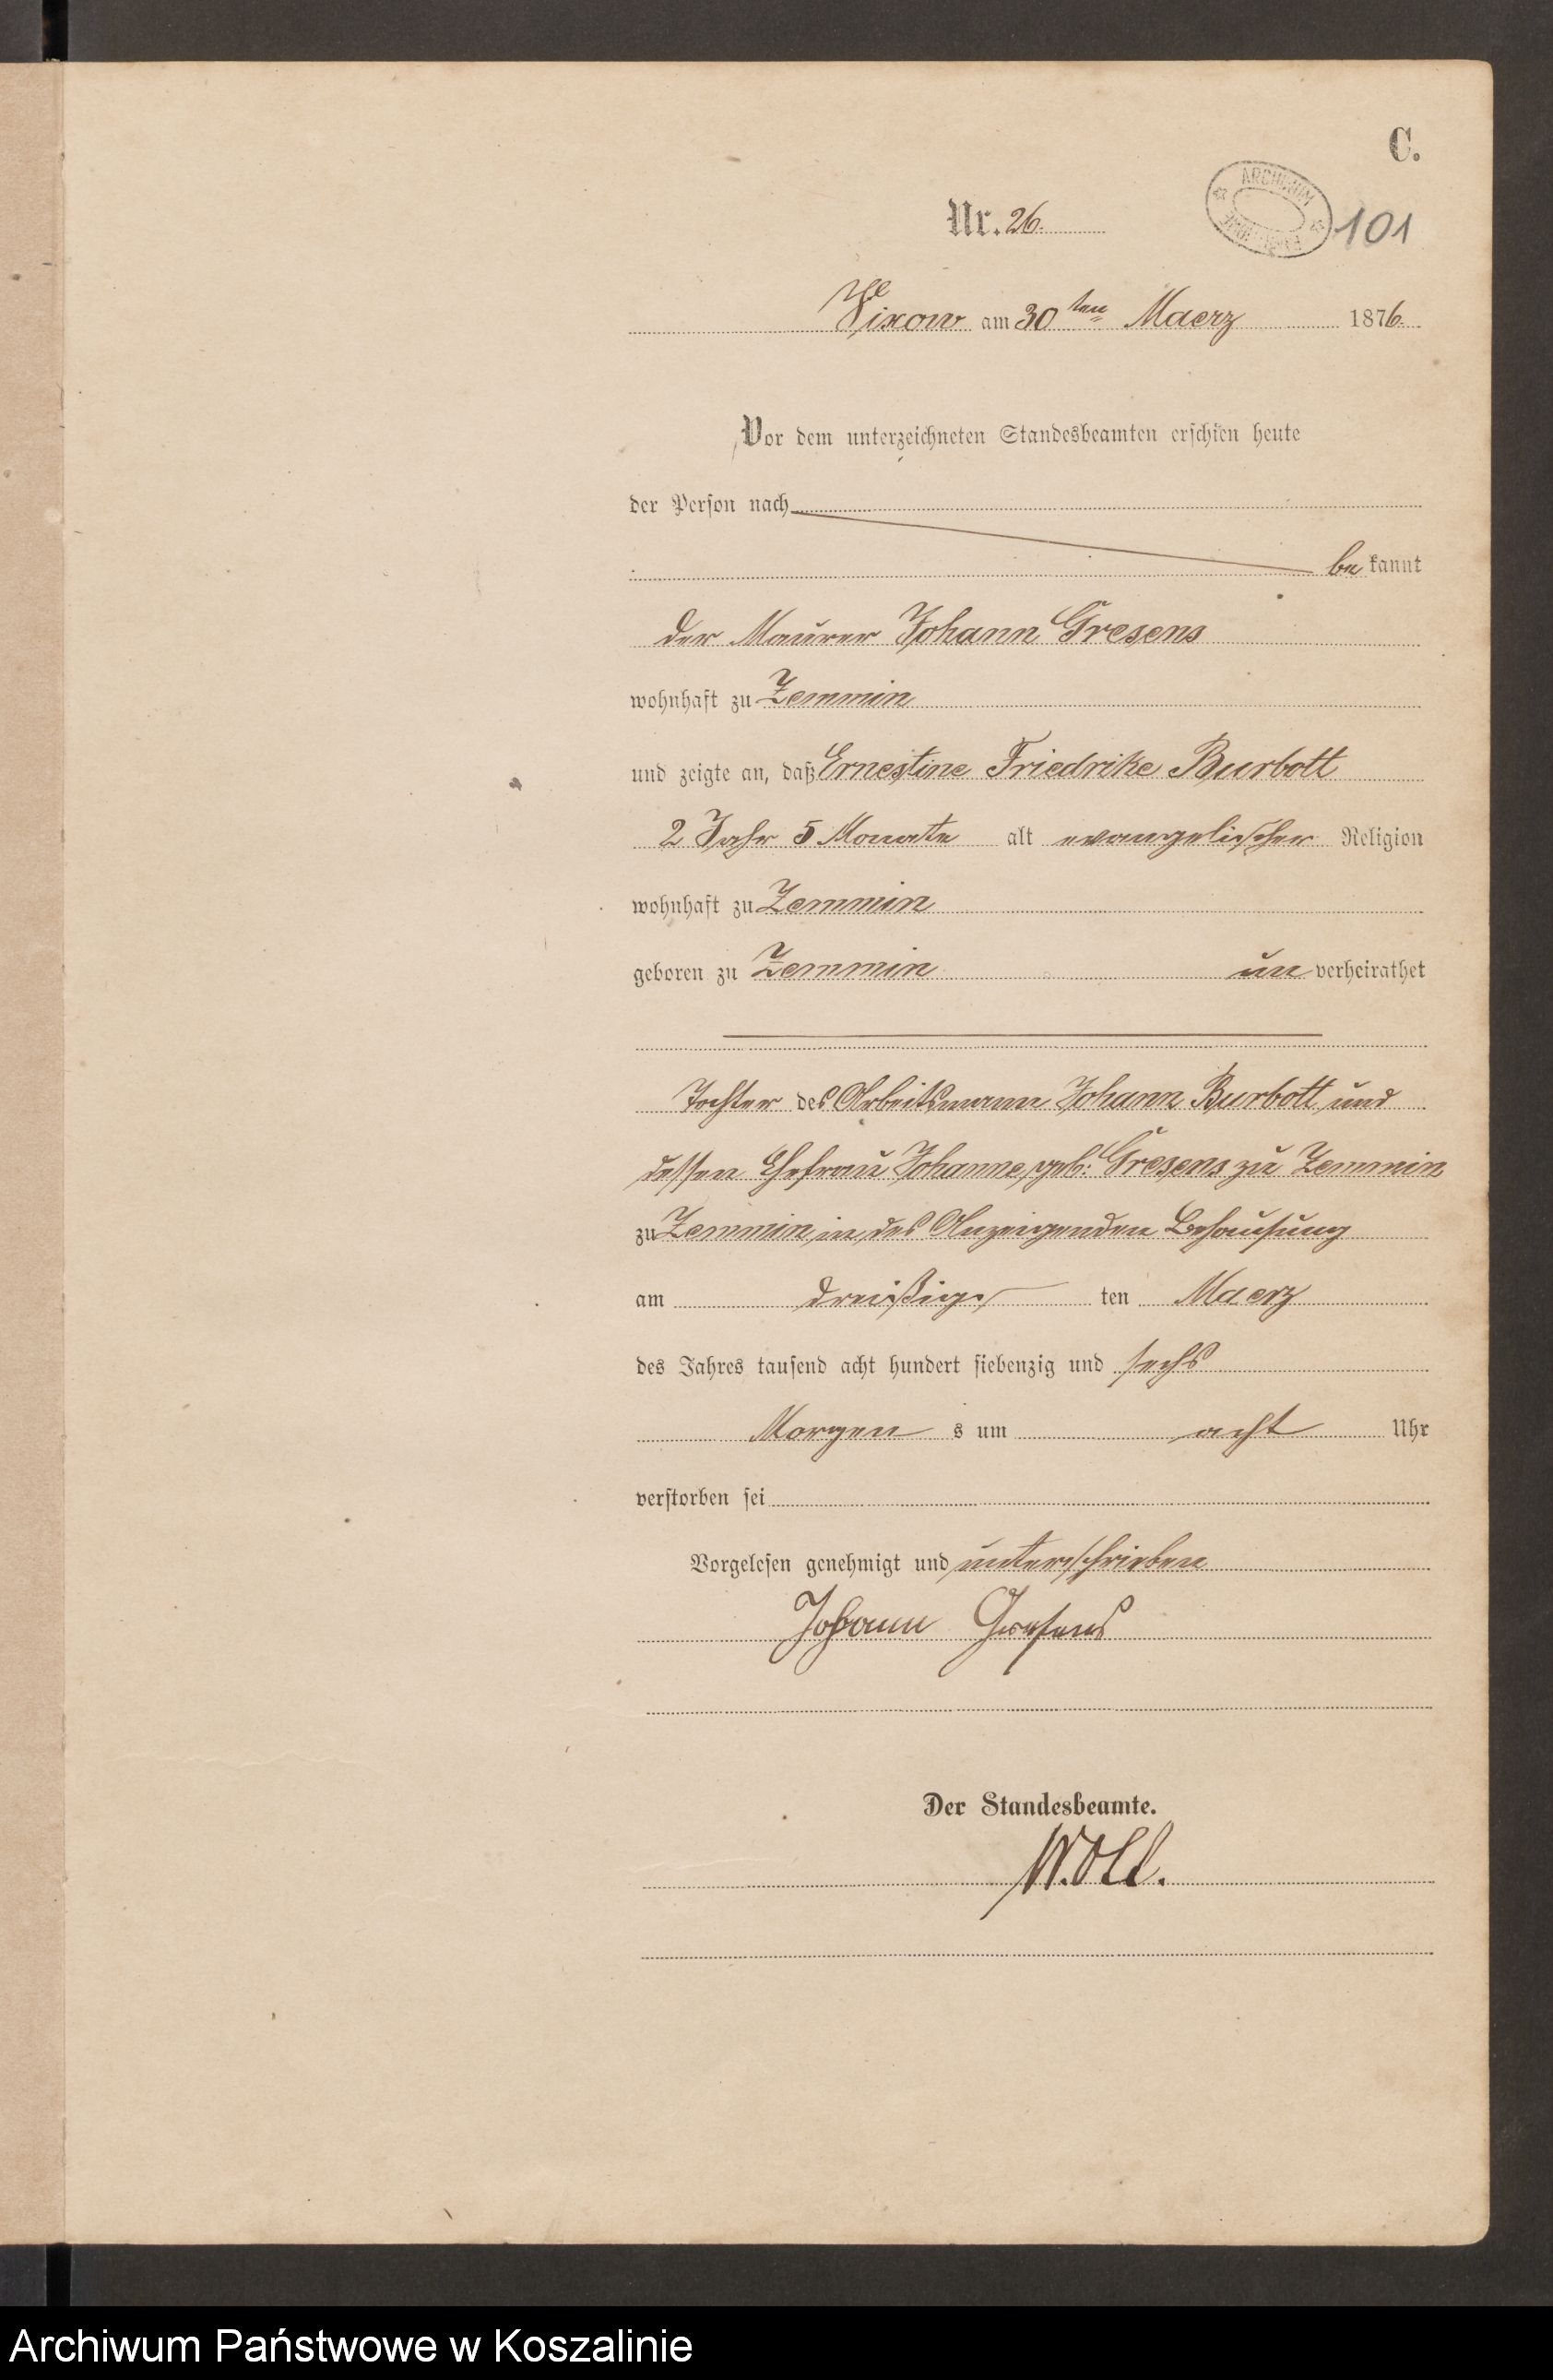 C.
ARCHIWUM
Nr. 26.
101
Vixow am 30ten Maerz 1876.
Vor dem unterzeichneten Standesbeamten erschien heute
der Person nach
be kannt
der Maurer Johann Gresens
wohnhaft zu Zemmin
und zeigte an, daß Ernestine Friedrike Burbott
2 Jahr 5 Monate alt evangelischer Religion
wohnhaft zu Zemmin
geboren zu Zemmin un verheirathet
Tochter des Arbeitsmann Johann Burbott und
dessen Ehefrau Johanne, geb: Gresens zu Zemmin
zu Zemmin in des Anzeigenden Behausung
am dreißigs ten Maerz
des Jahres tausend acht hundert siebenzig und sechs
Morgen s um acht Uhr
verstorben sei
Vorgelesen genehmigt und unterschrieben
Johann Gresens
Der Standesbeamte.
Archiwum Państwowe w Koszalinie